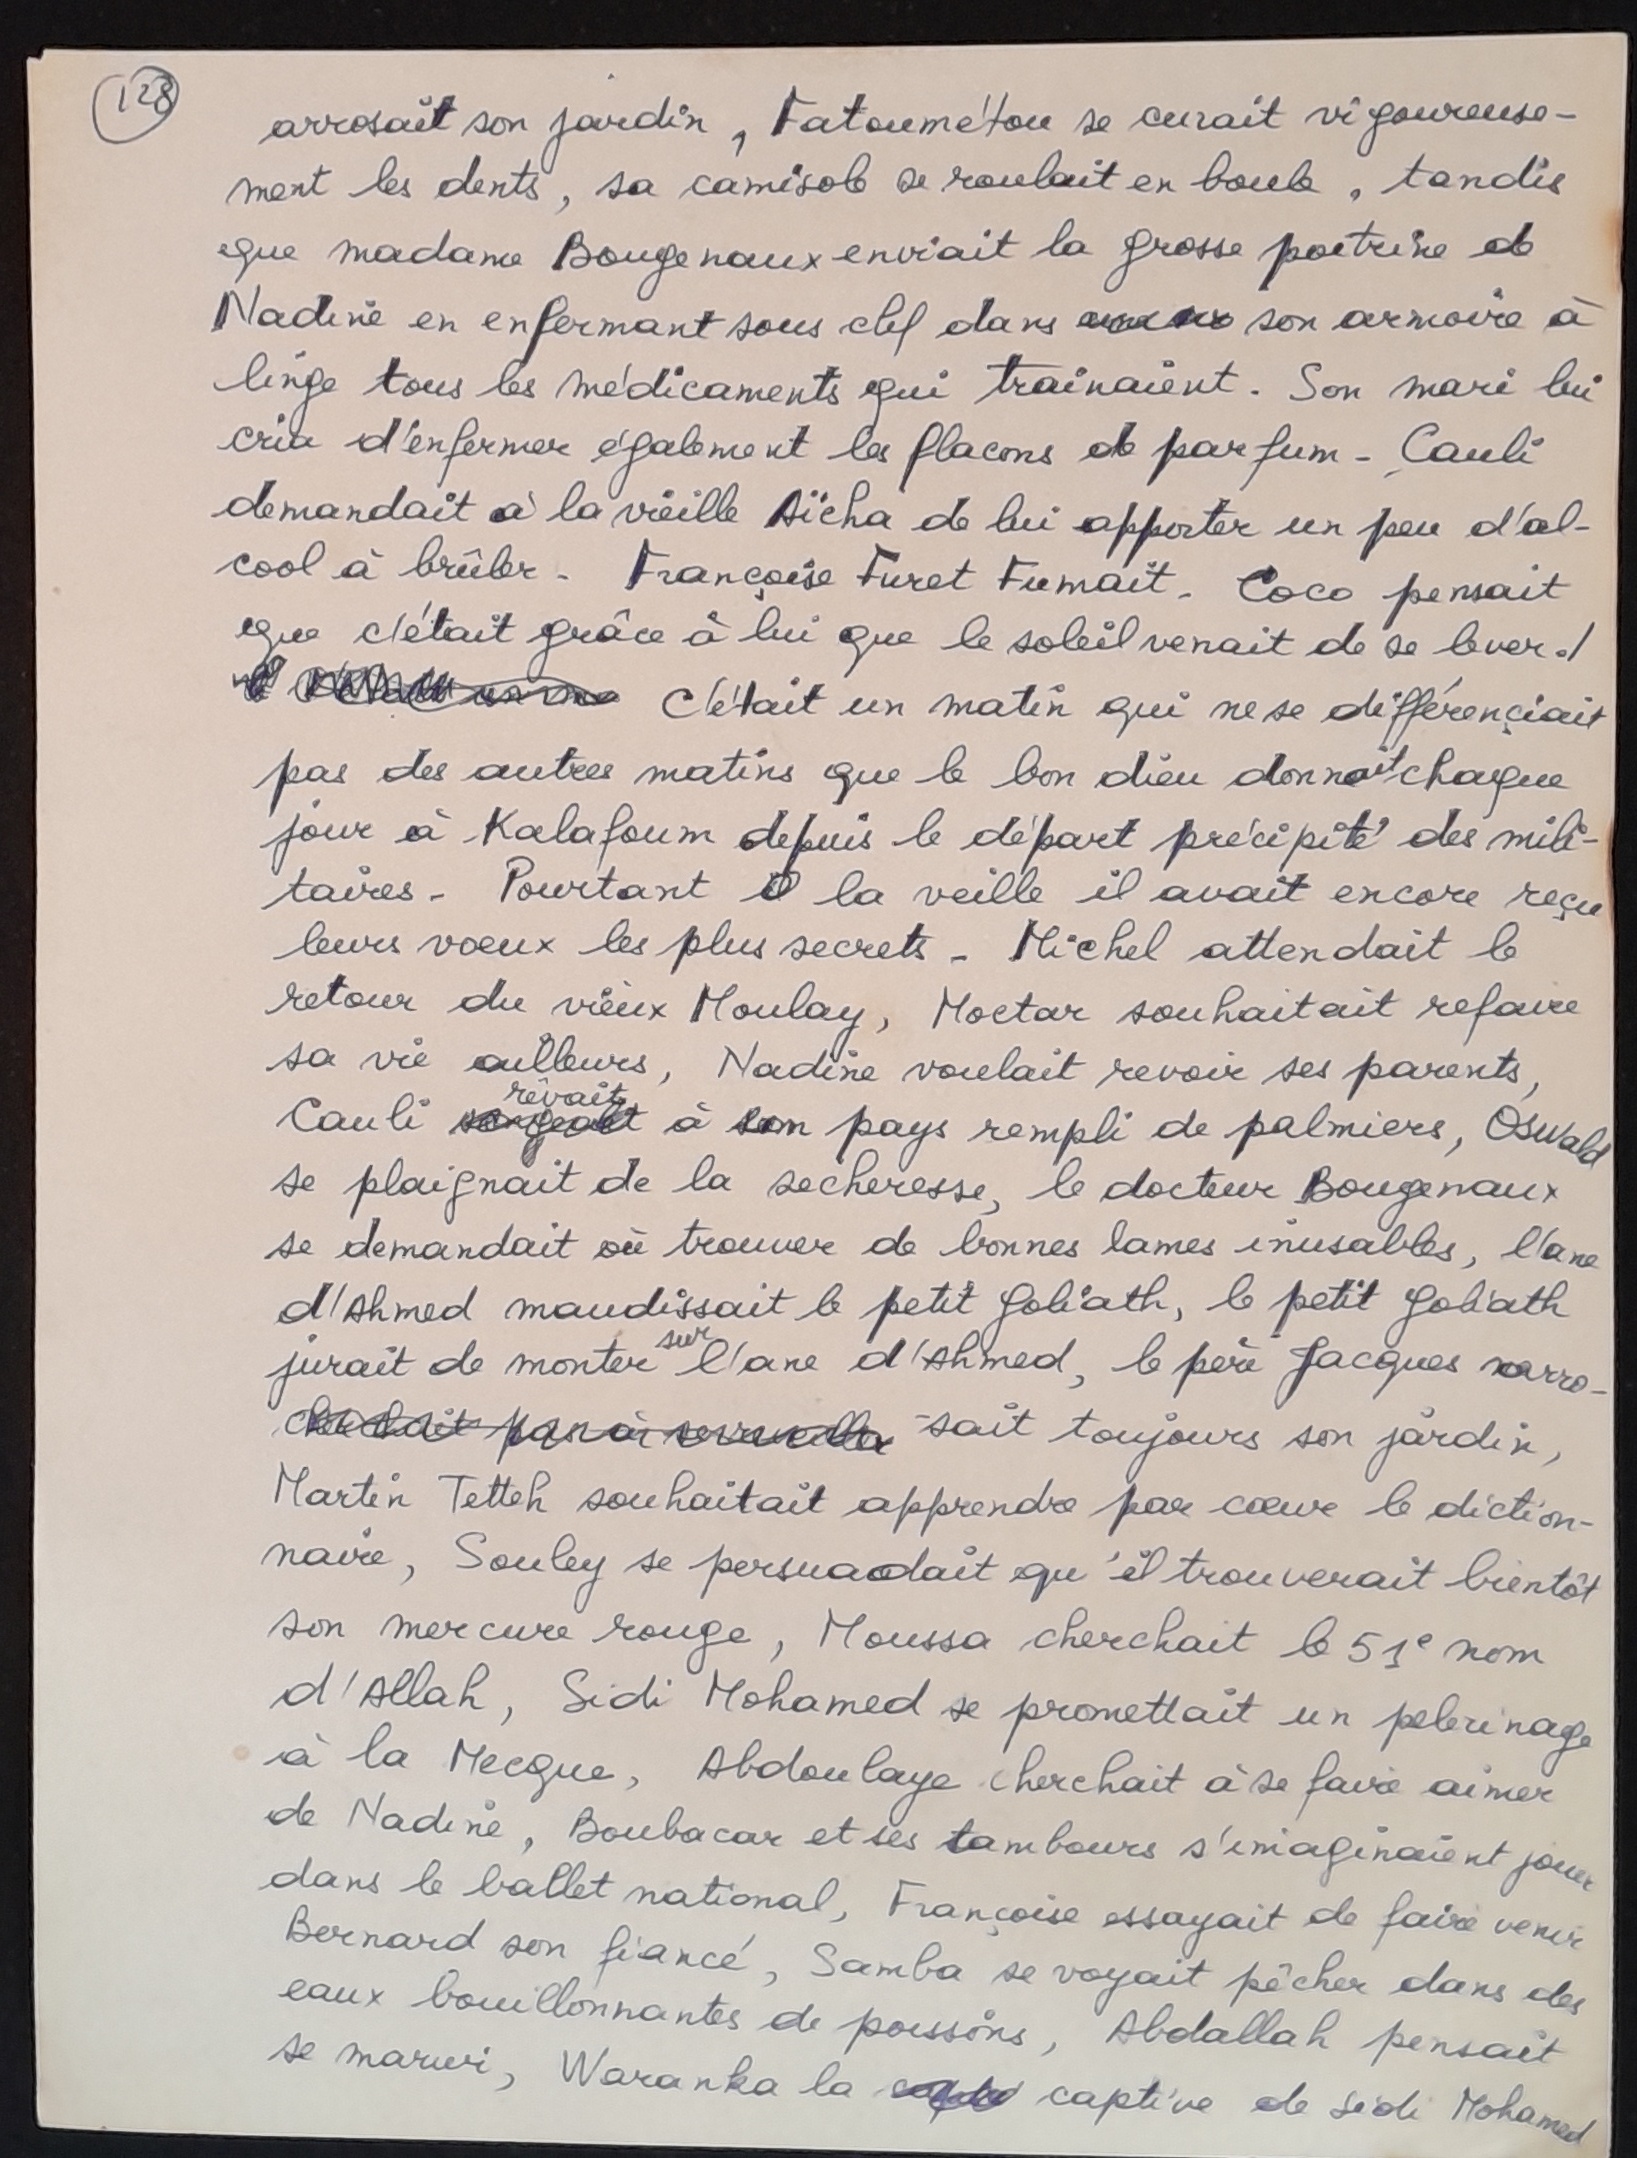 128
arrosait son jardin, Fatoumétou se curait vigoureuse-
ment les dents, sa camisole se roulait en boule, tandis
que madame Bougenaux enviait la grosse poitrine de
Nadine en enfermant sous clef dans son armoire à
linge tous les médicaments qui trainaient. Son mari lui
cria d'enfermer également les flacons de parfum - Cauli
demandait à la vieille Aïcha de lui apporter un peu d'al-
cool à brûler - Françoise Furet Fumait - Coco pensait
que c'était grâce à lui que le soleil venait de se lever./
C'était un matin qui ne se différençiait
pas des autres matins que le bon dieu donnait chaque
jour à Kalafoum depuis le départ précipité des mili-
taires - Pourtant la veille il avait encore reçu
leurs voeux les plus secrets - Michel attendait le
retour du vieux Moulay, Moctar souhaitait refaire
sa vie ailleurs, Nadine voulait revoir ses parents,
Cauli rêvait à son pays rempli de palmiers, Oswald
se plaignait de la secheresse, le docteur Bougenaux
se demandait où trouver de bonnes lames inusables, l'ane
d'Ahmed maudissait le petit Goliath, le petit Goliath
jurait de monter sur l'ane d'Ahmed, le père Jacques arro-
-sait toujours son jardin,
Martin Tetteh souhaitait apprendre par coeur le diction-
naire, Souley se persuadait qu'il trouverait bientôt
son mercure rouge, Moussa cherchait le 51e nom
d'Allah, Sidi Mohamed se promettait un pelerinage
à la Mecque, Abdoulaye cherchait à se faire aimer
de Nadine, Boubacar et ses tambours s'imaginaient jouer
dans le ballet national, Françoise essayait de faire venir
Bernard son fiancé, Samba se voyait pêcher dans des
eaux bouillonnantes de poissons, Abdallah pensait
se marier, Waranka la captive de Sidi Mohamed